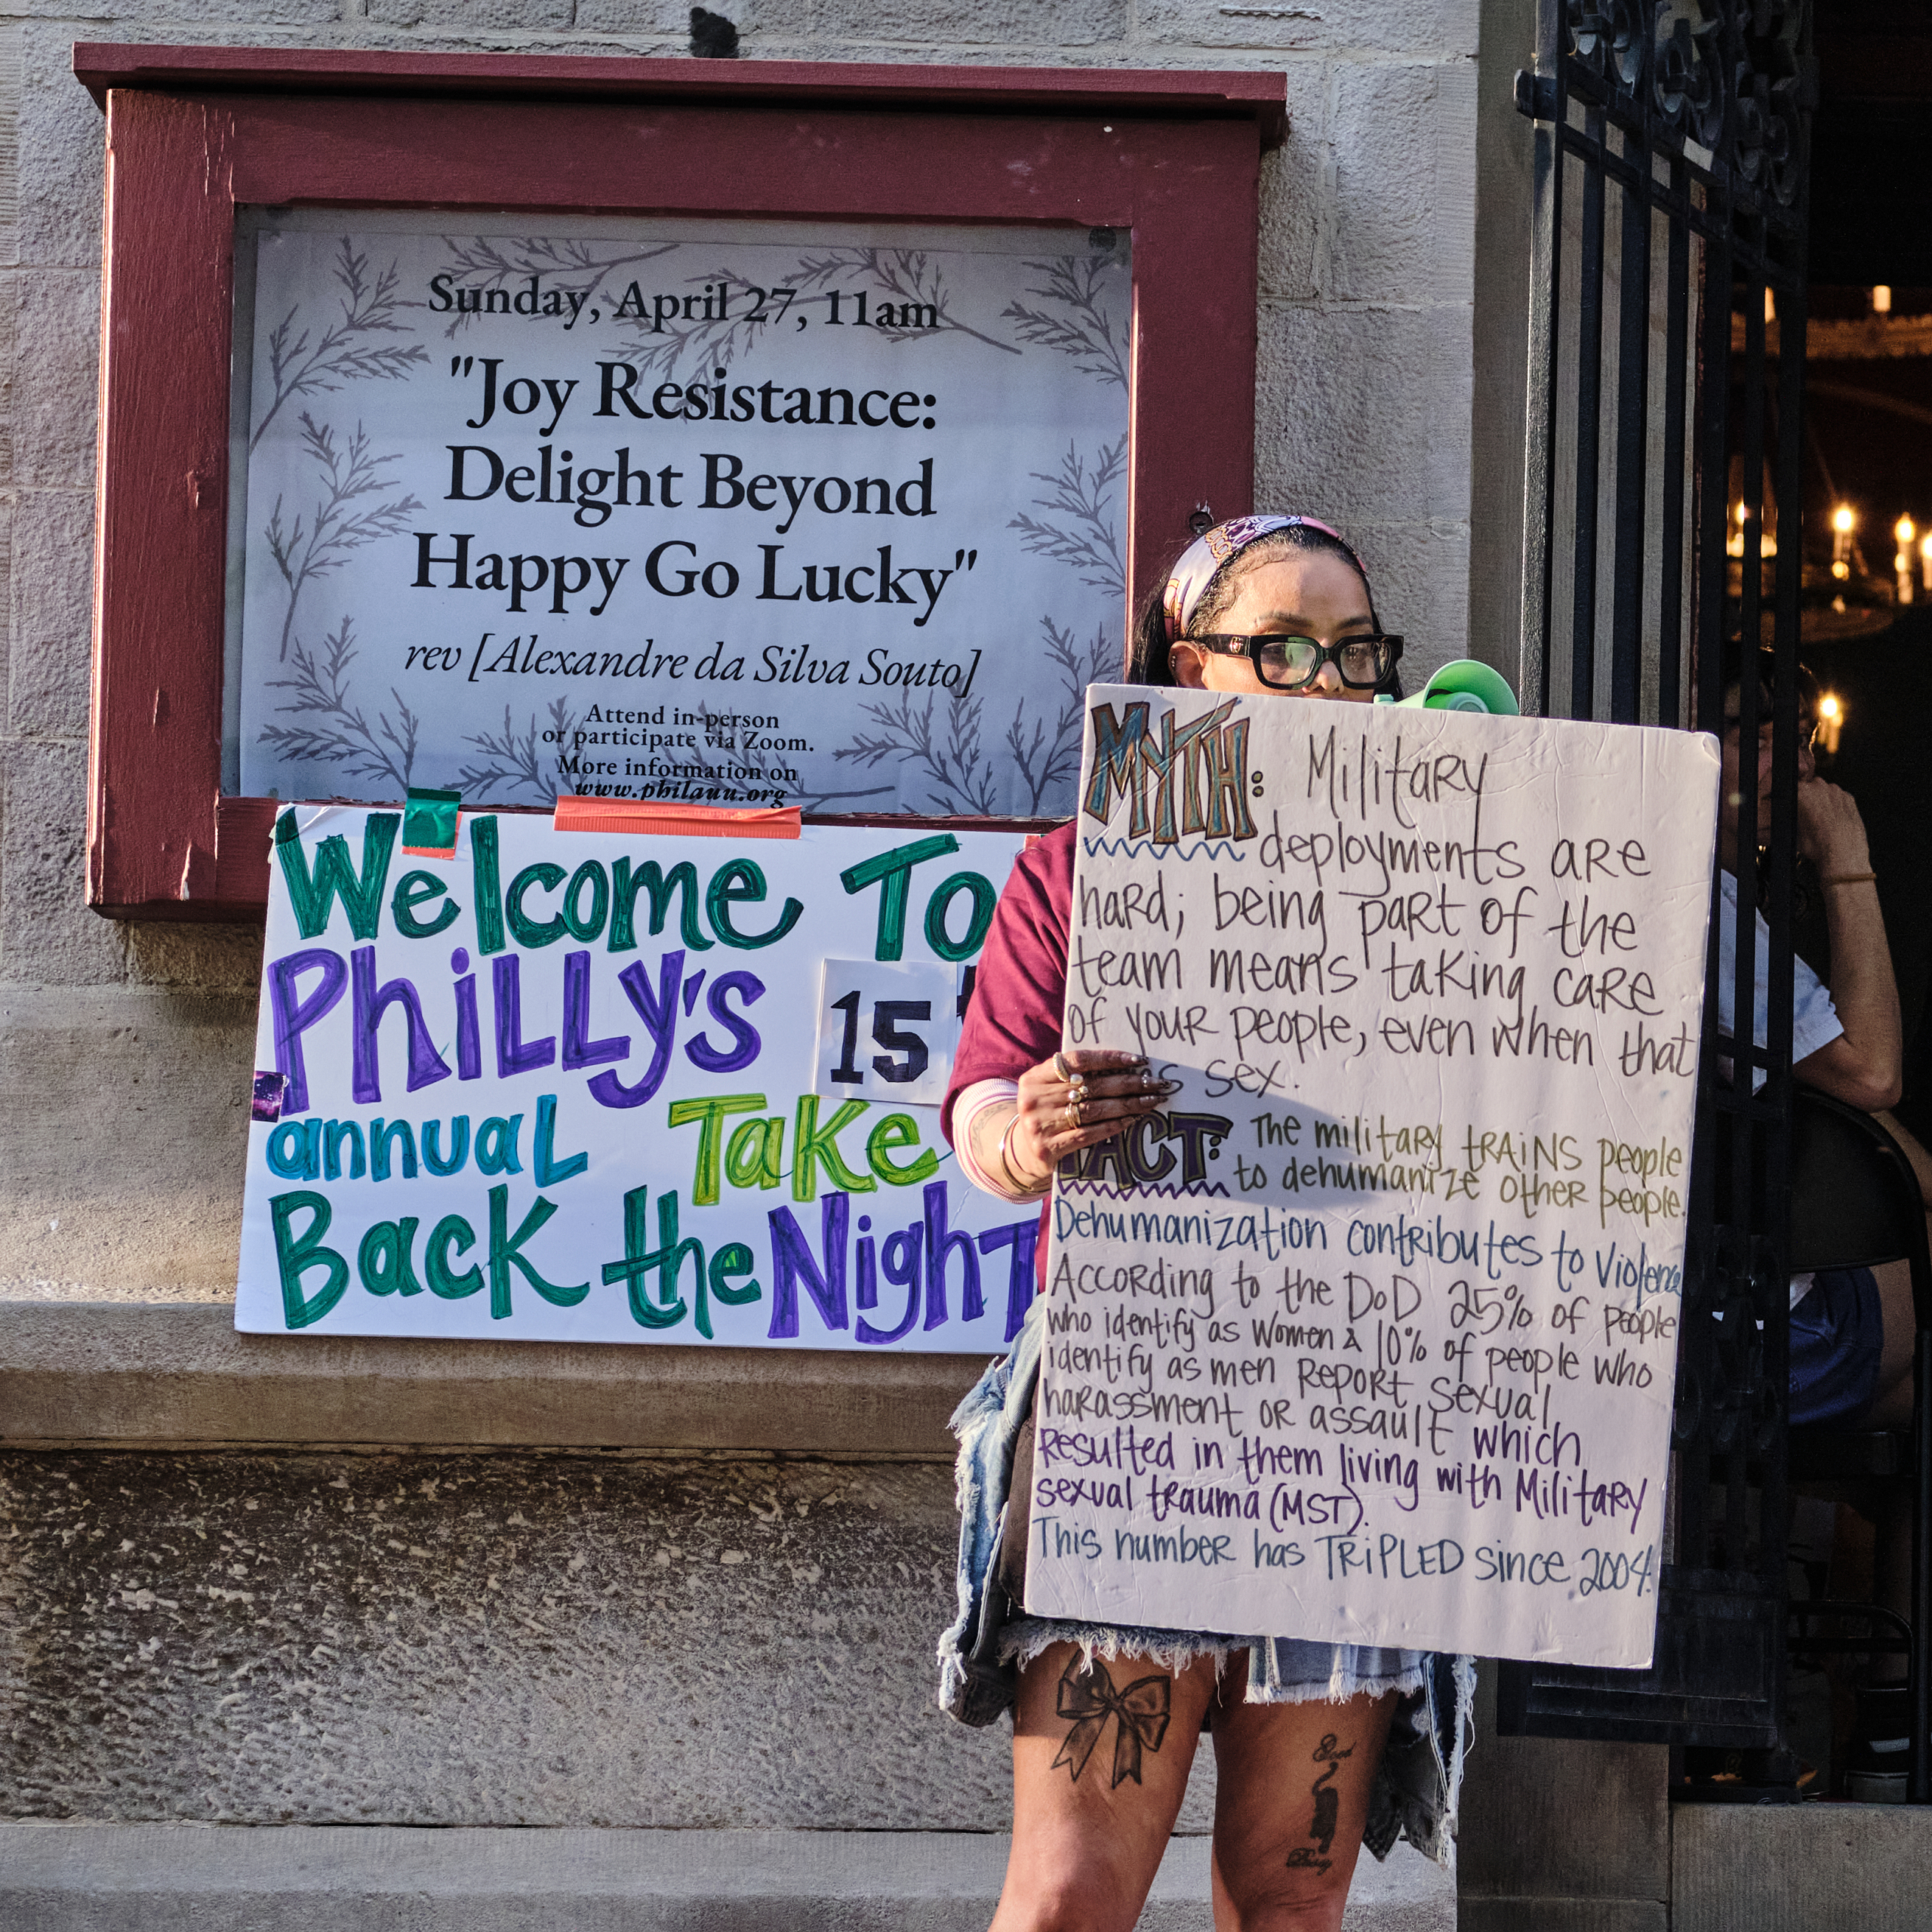 Sunday, April 27, 11am
"Joy Resistance:
Delight Beyond
Happy Go Lucky"
rev [Alexandre da Silva Souto]
Attend in-person
or participate via Zoom.
More information on
www.philauu.org
Welcome To
PhiLLy's 15
annual Take
Back the Night
MYTH: Military
deployments are
hard; being part of the
team means taking care
of your people, even when that
s sex.
FACT: The military trains people
to dehumanize other people.
Dehumanization contributes to violence
According to the DoD 25% of people
who identify as women & 10% of people who
identify as men report sexual
harassment or assault which
resulted in them living with Military
sexual trauma (MST).
This number has TRiPLED since 2004.
Good